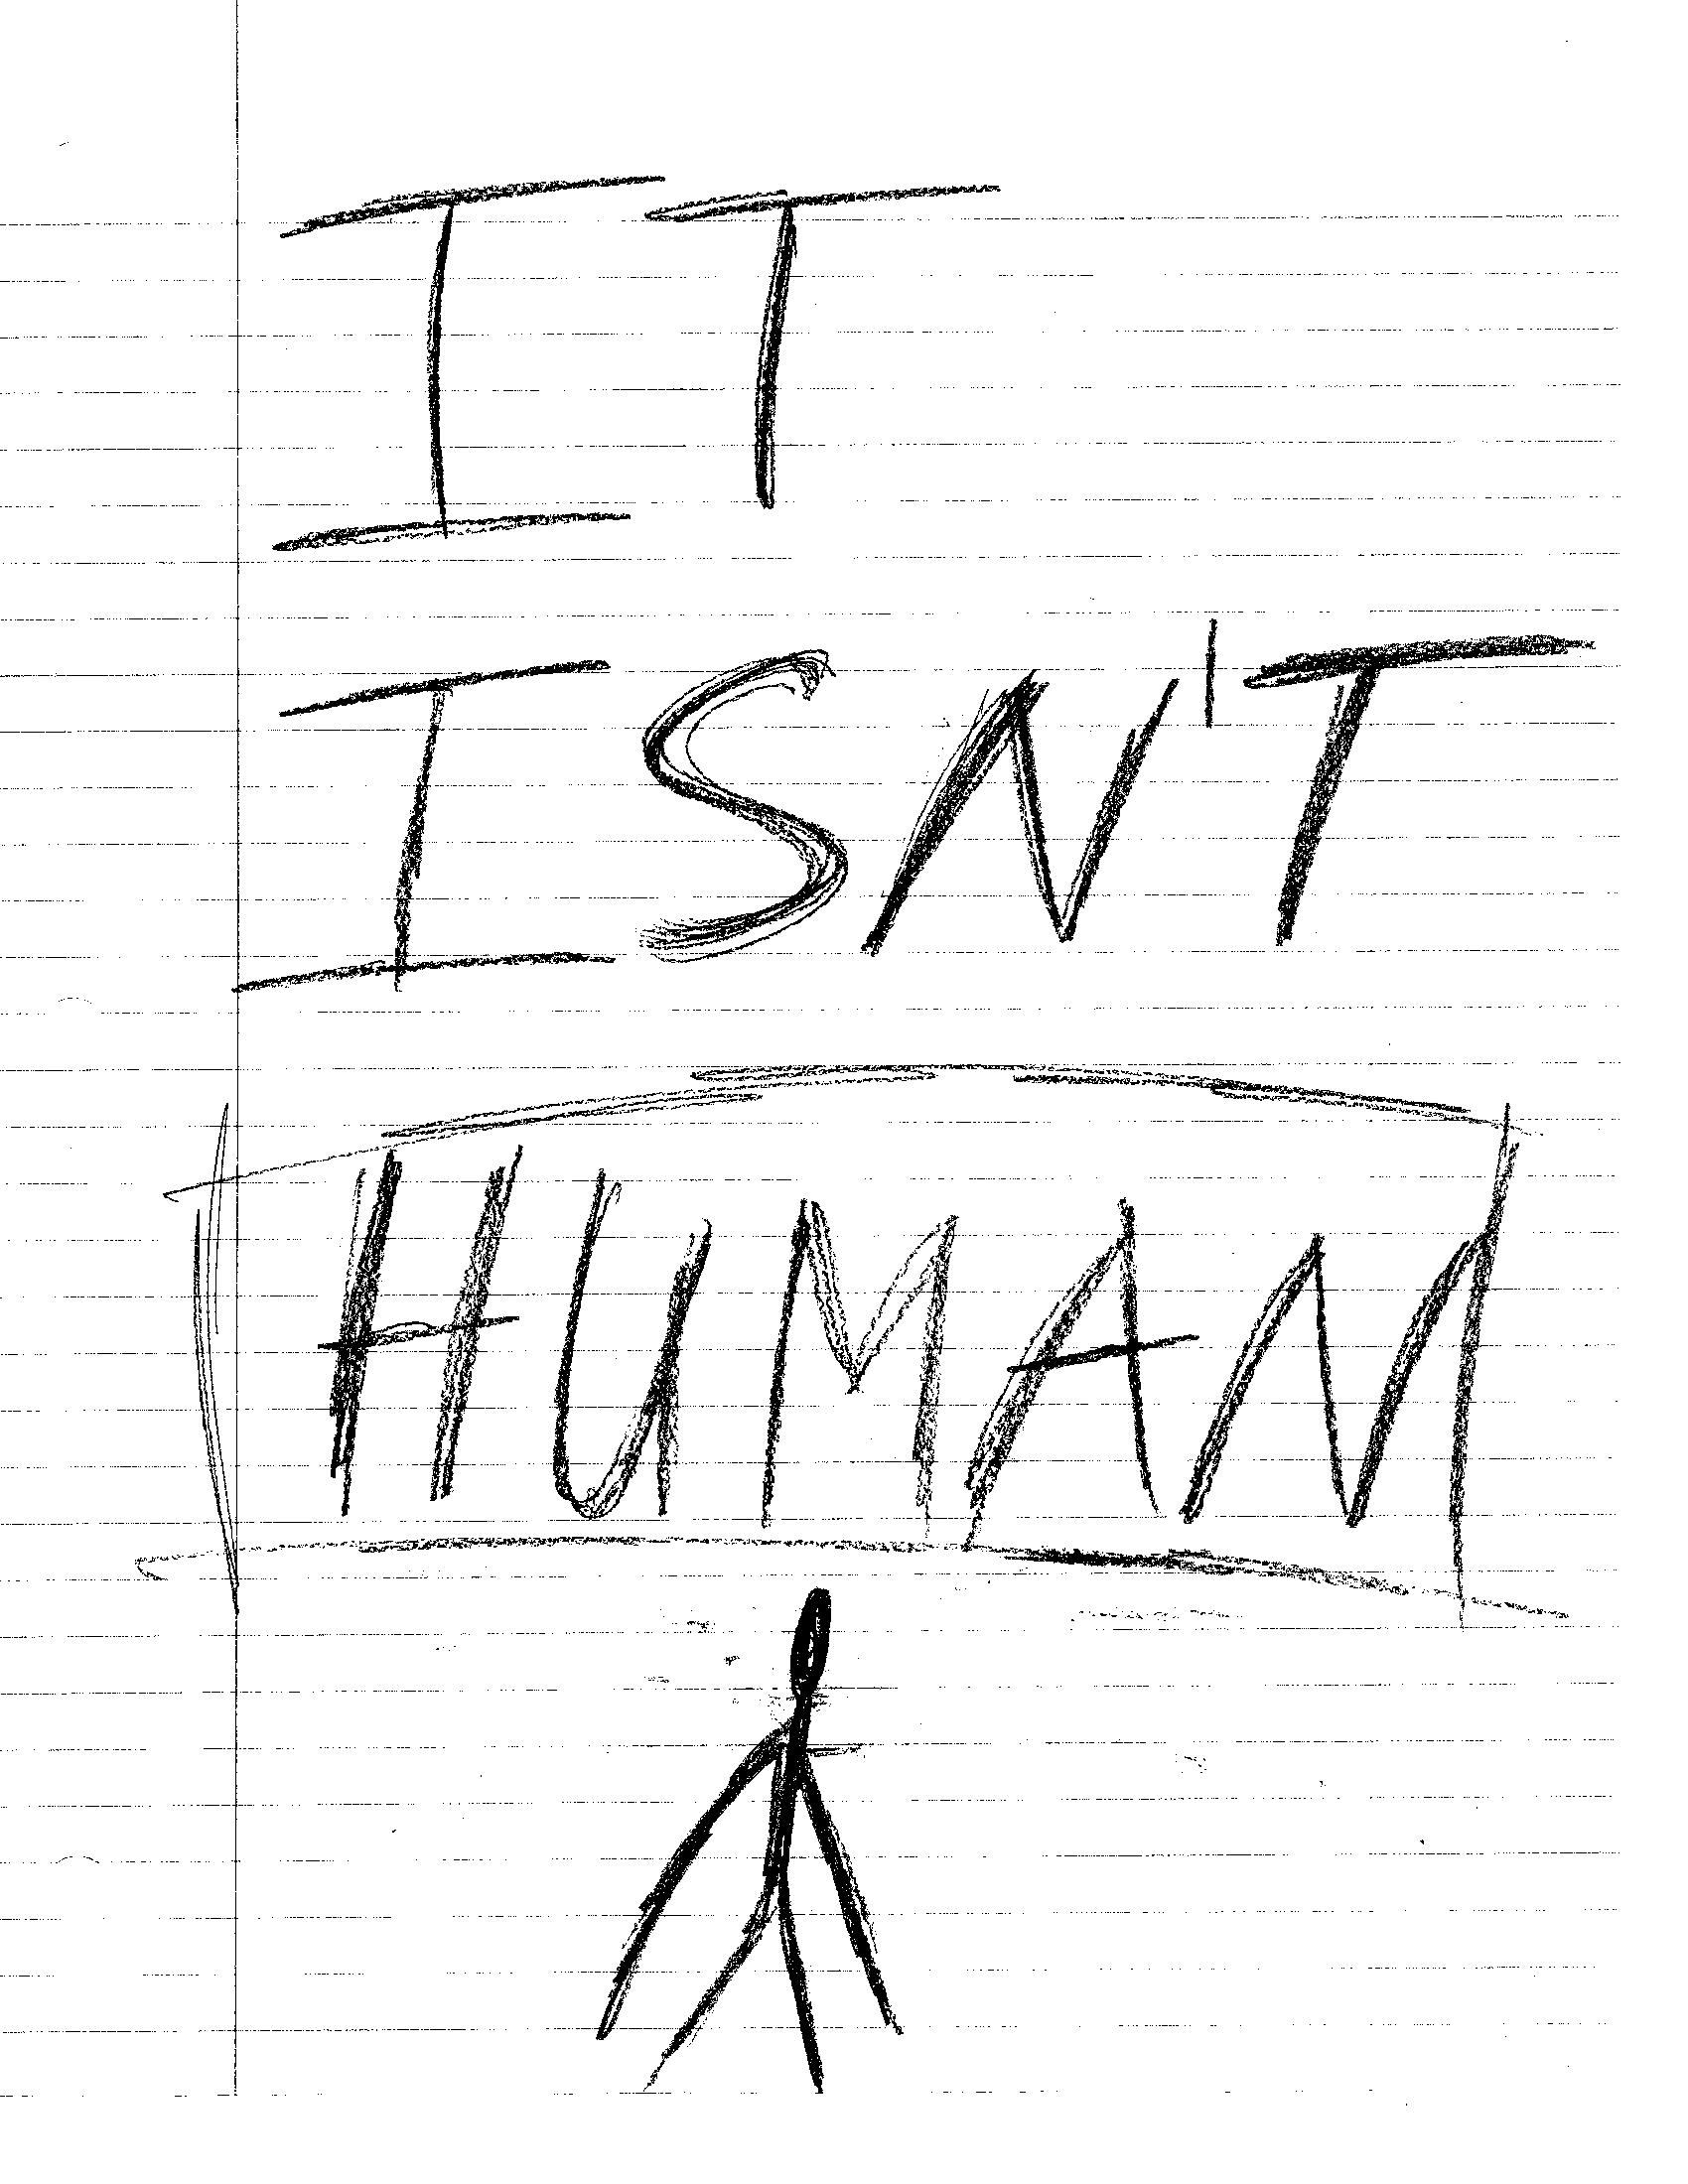 IT
ISN'T
HUMAN